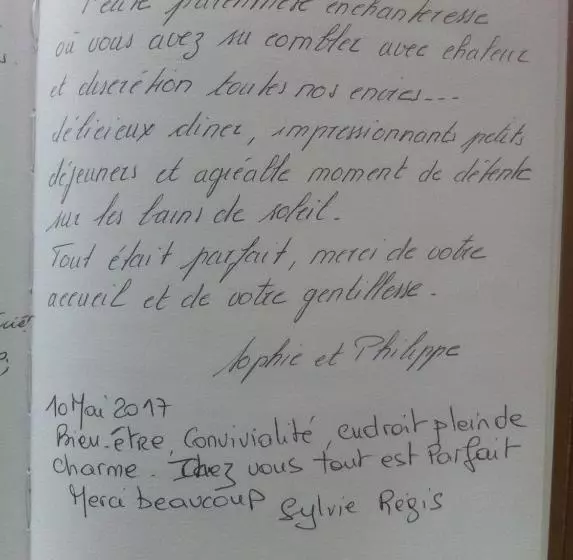 enchanteresse
où vous avez su combler avec chaleur
et discrétion toutes nos envies...
délicieux diner, impressionnants petits
déjeuners et agréable moment de détente
sur les bains de soleil.
Tout était parfait, merci de votre
accueil et de votre gentillesse.
Sophie et Philippe
10 Mai 2017
Bien-être, Convivialité, endroit plein de
charme. Chez vous tout est Parfait
Merci beaucoup Sylvie Régis